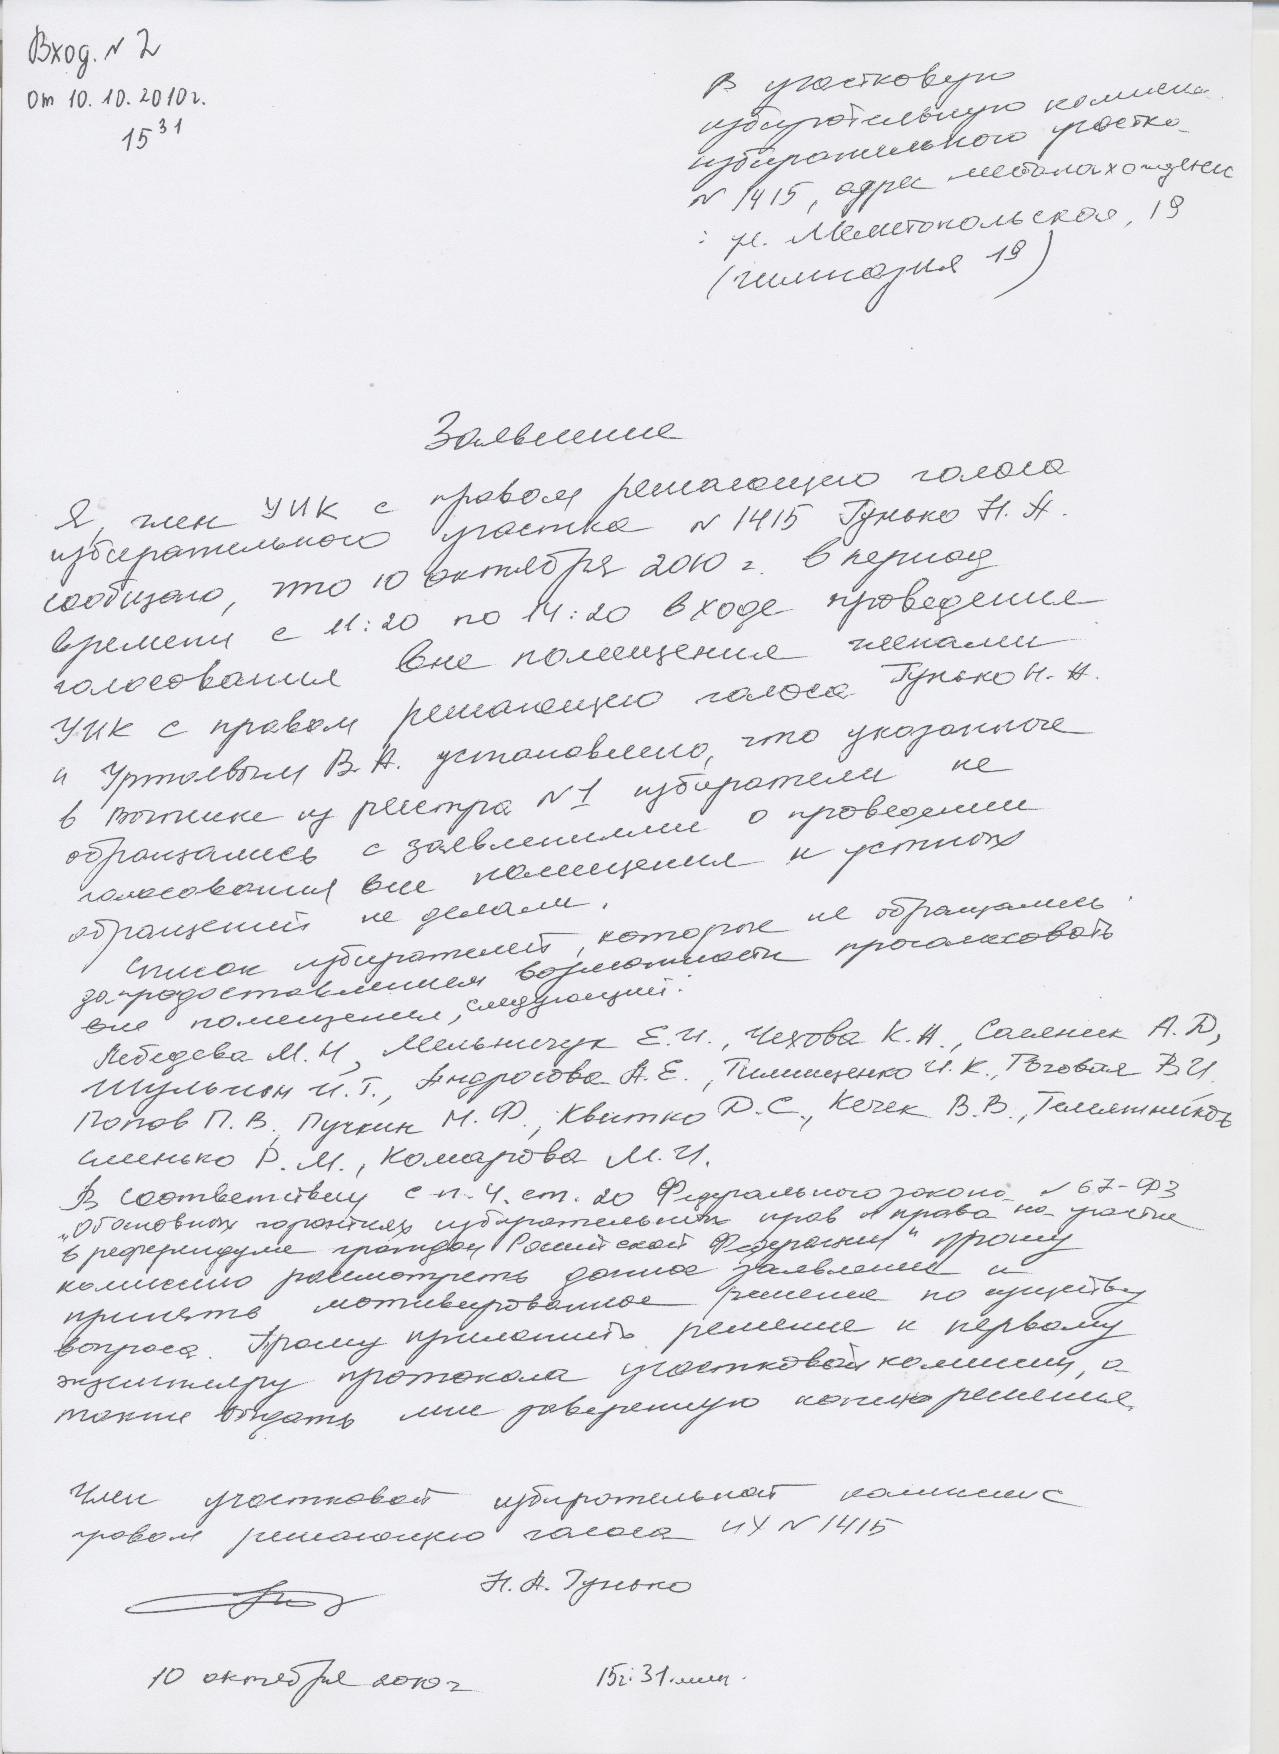 Вход. N 2
от 10.10.2010г.
15 31
В участковую
избирательную комисси
избирательного участка
N 1415, адрес местонахождения
: ул. Мелитопольская, 19
(гимназия 19)
Заявление
Я, член УИК с правом решающего голоса
избирательного участка N 1415 Гунько Н. А.
сообщаю, что 10 октября 2010 г. в период
времени с 11:20 по 14:20 в ходе проведения
голосования вне помещения членами
УИК с правом решающего голоса Гунько Н. А.
и В. А. установлено, что указанные
в выписке из реестра N 1 избиратели не
обращались с заявлениями о проведении
голосования вне помещения и устных
обращений не делали.
Список избирателей, которые не обращались
за предоставлением возможности проголосовать
вне помещения, следующий:
Лебедева М. И., Мельничук Е. И., Чехова К. А., А. Д.,
Шульман И. Г., Андросова А. Е., Тимищенко И. К., Роговая В. И.
Попов П. В., Пучкин М. Ф., Квитко Д. С., Кечек В. В.,
Р. М., Комарова М. И.
В соответствии с п. 4. ст. 20 Федерального закона N 67-ФЗ
„Об основных гарантиях избирательных прав и права на участие
в референдуме граждан Российской Федерации“ прошу
комиссию рассмотреть данное заявление и
принять мотивированное решение по существу
вопроса. Прошу приложить решение к первому
экземпляру протокола участковой комиссии, а
также выдать мне заверенную копию решения.
Член участковой избирательной комиссии с
правом решающего голоса ИУ N 1415
Н. А. Гунько
10 октября 2010 г 15ч:31 мин.